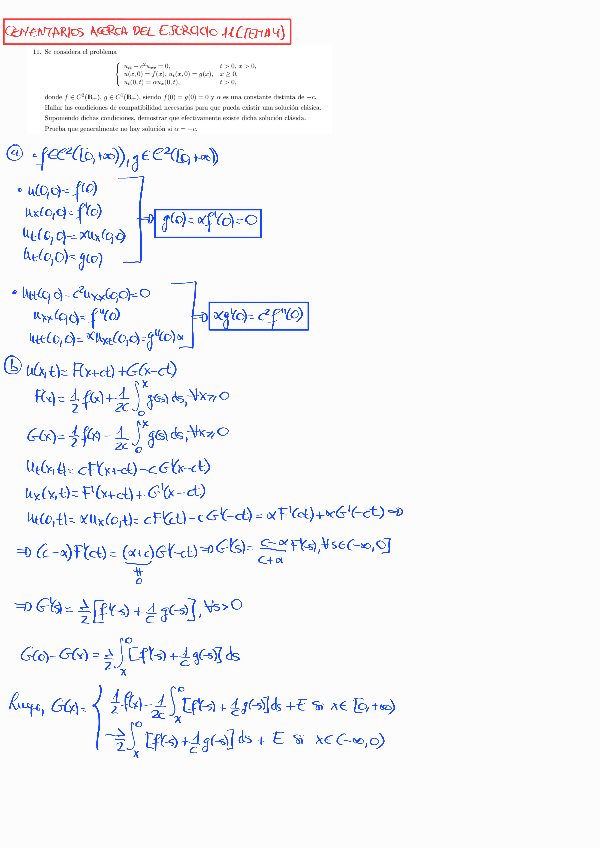 COMENTARIOS ACERCA DEL EJERCICIO 11 (TEMA 4)
11. Se considera el problema
u_tt − c²u_xx = 0, t > 0, x > 0,
u(x,0) = f(x), u_t(x,0) = g(x), x ≥ 0,
u_t(0,t) = αu_x(0,t), t > 0,
donde f ∈ C²(ℝ₊), g ∈ C¹(ℝ₊), siendo f(0) = g(0) = 0 y α es una constante distinta de −c.
Hallar las condiciones de compatibilidad necesarias para que pueda existir una solución clásica.
Suponiendo dichas condiciones, demostrar que efectivamente existe dicha solución clásica.
Prueba que generalmente no hay solución si α = −c.
ⓐ • f∈C²([0,+∞)), g∈C²([0,+∞))
• u(0,0) = f(0)
u_x(0,0) = f'(0)
u_t(0,0) = αu_x(0,0) ⇒ g(0) = αf'(0) = 0
u_t(0,0) = g(0)
• u_tt(0,0) − c²u_xx(0,0) = 0
u_xx(0,0) = f''(0) ⇒ αg'(0) = c²f''(0)
u_tt(0,0) = αu_xt(0,0) = g'(0)α
ⓑ u(x,t) = F(x+ct) + G(x−ct)
F(x) = 1/2 f(x) + 1/2c ∫₀ˣ g(s) ds, ∀x≥0
G(x) = 1/2 f(x) − 1/2c ∫₀ˣ g(s) ds, ∀x≥0
u_t(x,t) = cF'(x+ct) − cG'(x−ct)
u_x(x,t) = F'(x+ct) + G'(x−ct)
u_t(0,t) = αu_x(0,t) = cF'(ct) − cG'(−ct) = αF'(ct) + αG'(−ct) ⇒
⇒ (c−α)F'(ct) = (α+c)G'(−ct) ⇒ G'(s) = (c−α)/(c+α) F'(s), ∀s∈(−∞,0]
≠
0
⇒ G'(s) = λ/2 [f'(−s) + 1/c g(−s)], ∀s>0
G(0) − G(x) = λ/2 ∫ₓ⁰ [f'(−s) + 1/c g(−s)] ds
Luego, G(x) = { 1/2 f(x) − 1/2c ∫ₓ⁰ [f'(−s) + 1/c g(−s)] ds + E si x∈[0,+∞)
−λ/2 ∫ₓ⁰ [f'(−s) + 1/c g(−s)] ds + E si x∈(−∞,0)